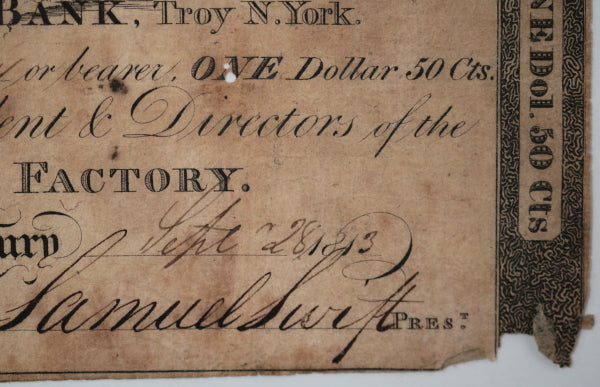 BANK, Troy N.York.
or bearer, ONE Dollar 50 Cts.
ent & Directors of the
FACTORY.
ury Sept 28 1813
Samuel Swift PRES.T
NE Dol. 50 Cts